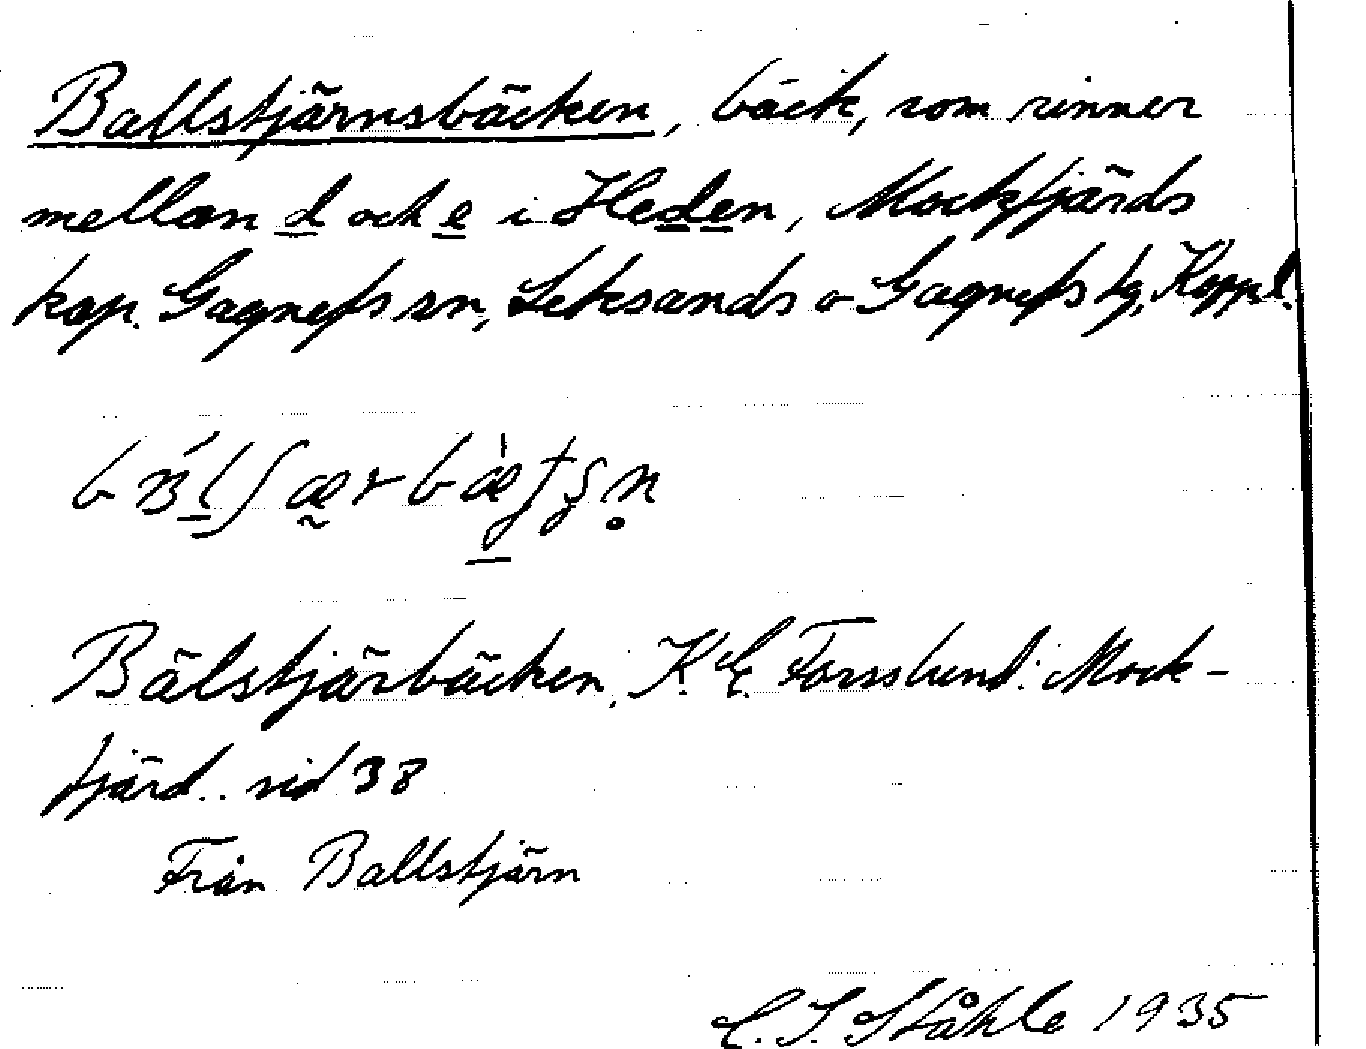 Ballstjärnsbäcken, bäck, som rinner
mellan d och e i Heden, Mockfjärds
kap. Gagnefs sn, Leksands o Gagnefs tg, Koppl.
Bälstjärbäcken, K. E. Forsslund: Mock-
fjärd.. sid 38
Från Ballstjärn
C. I. Ståhle 1935